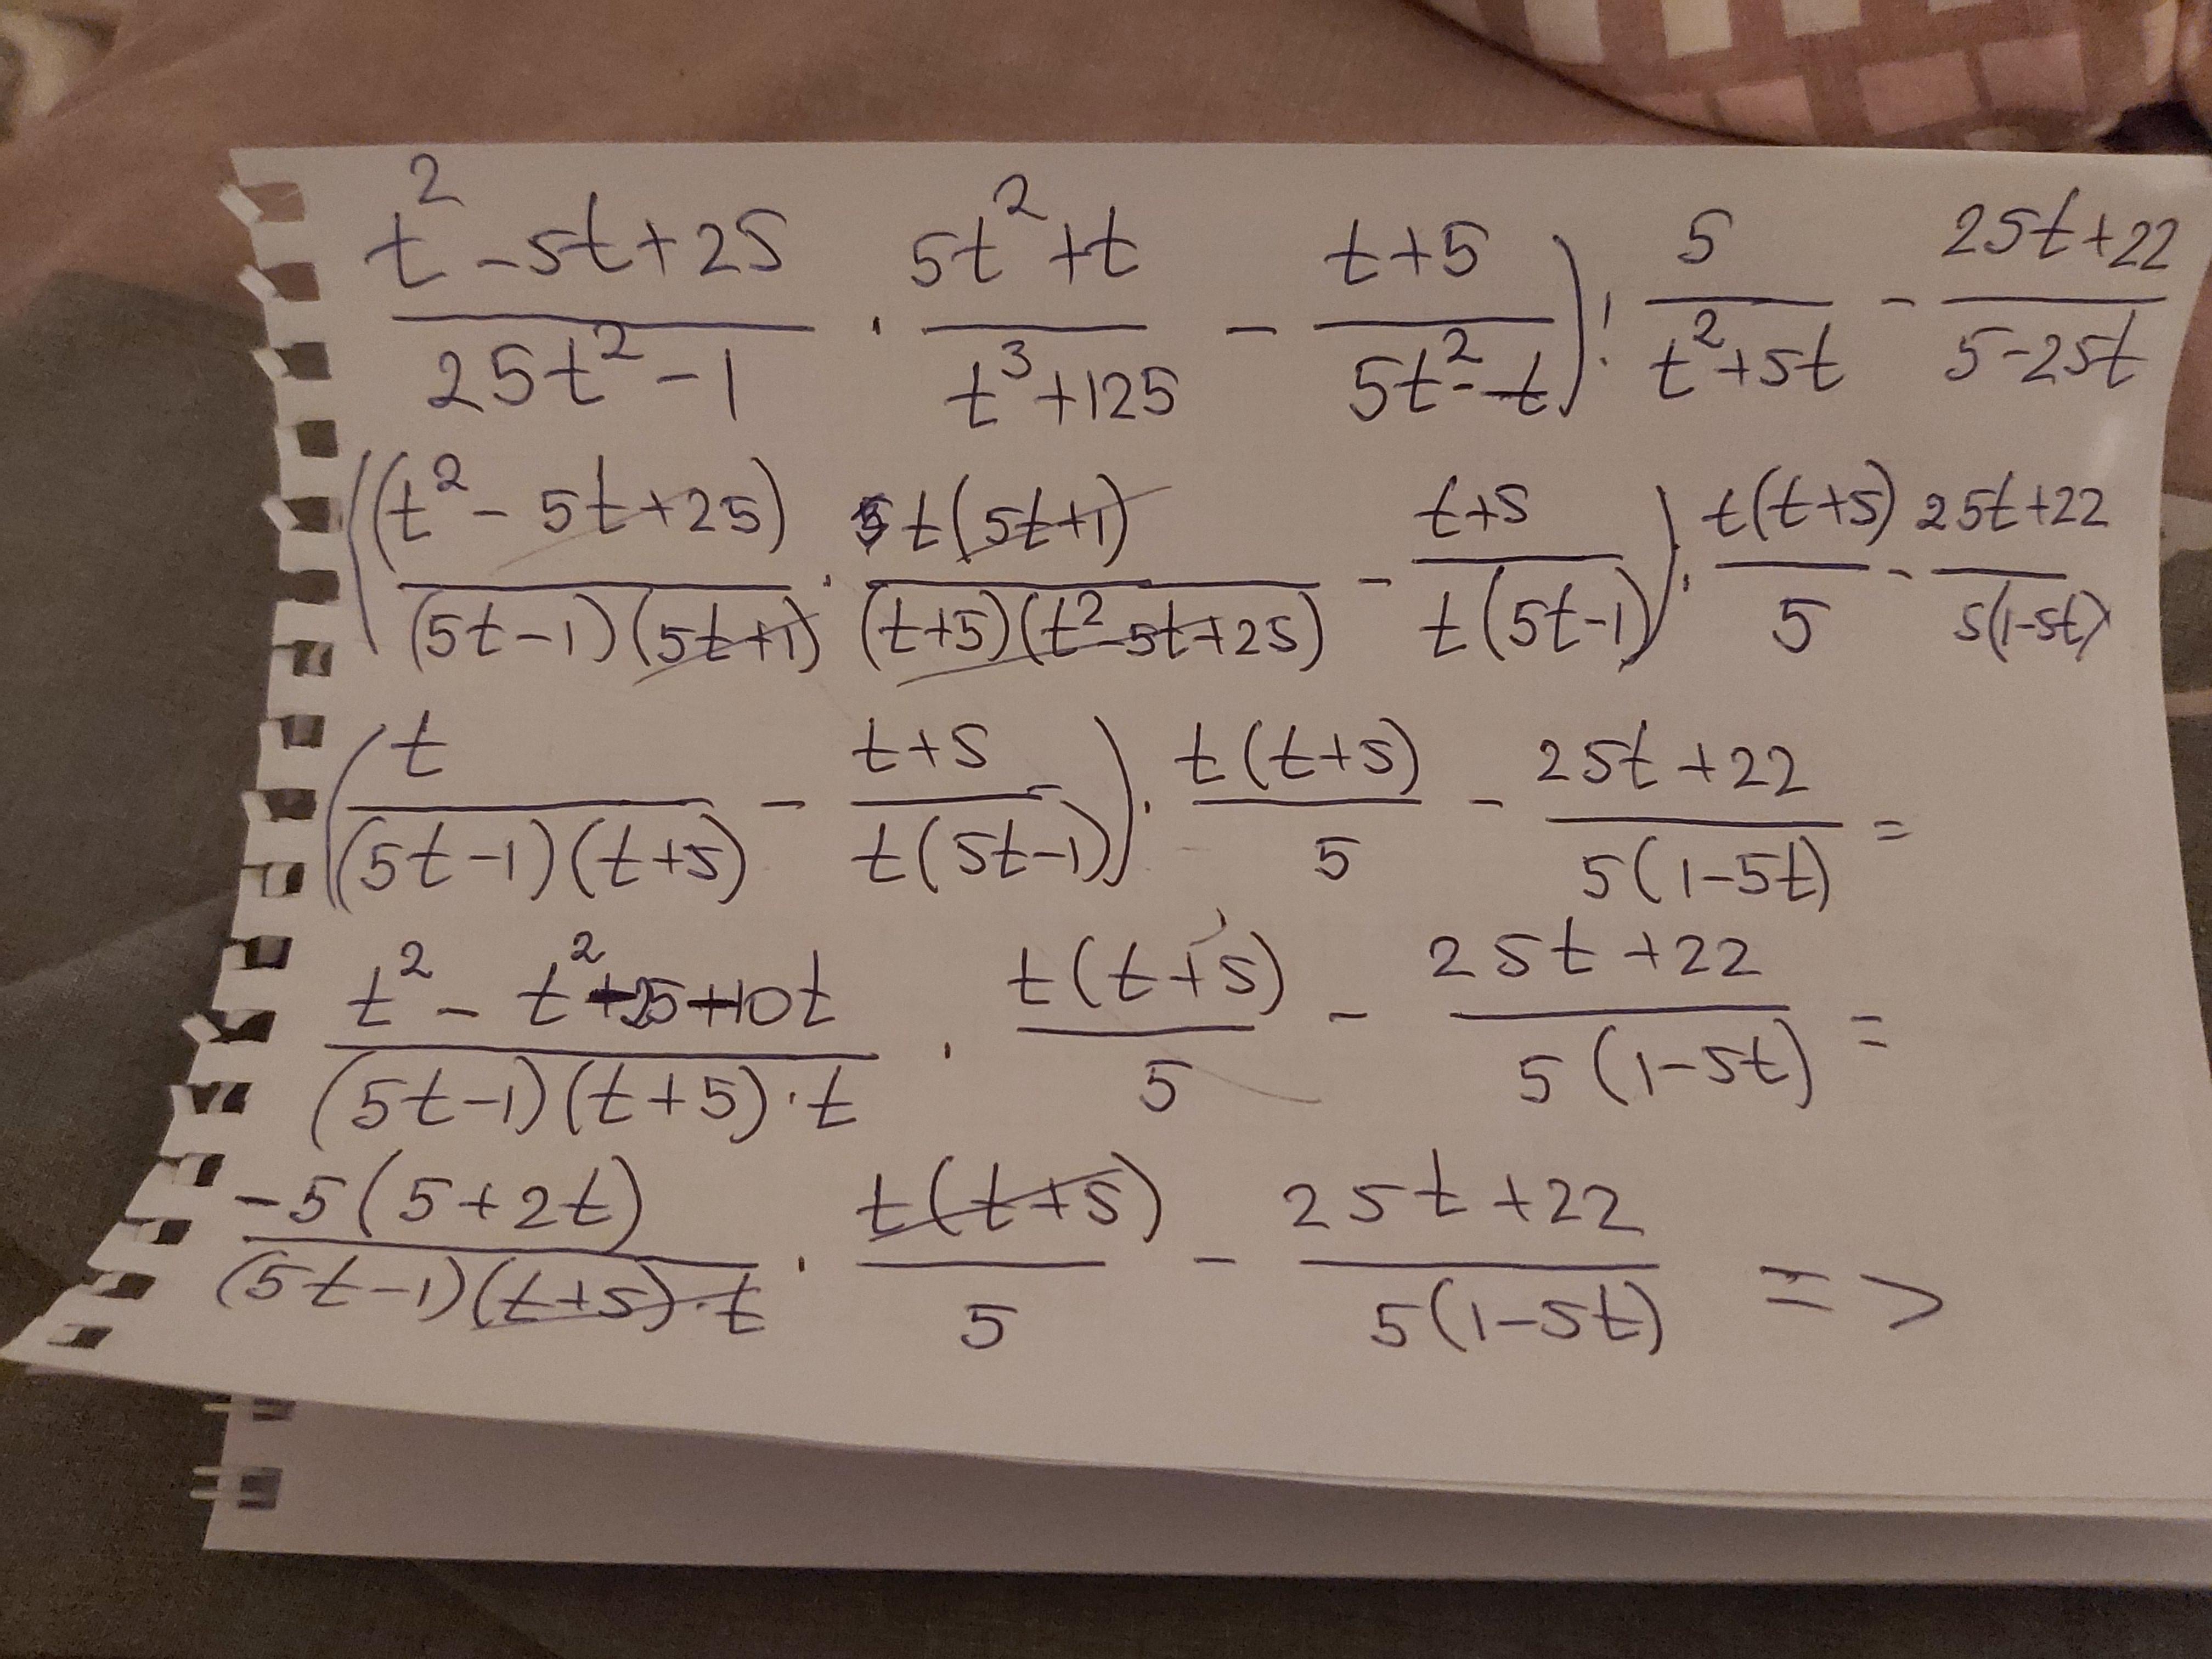 (t² - 5t + 25)/(25t² - 1) · (5t² + t)/(t³ + 125) - (t + 5)/(5t² - t)) : 5/(t² + 5t) - (25t + 22)/(5 - 25t)
((t² - 5t + 25)/((5t - 1)(5t + 1)) · t(5t + 1)/((t + 5)(t² - 5t + 25)) - (t + 5)/(t(5t - 1))) · t(t + 5)/5 - (25t + 22)/(5(1 - 5t))
(t/((5t - 1)(t + 5)) - (t + 5)/(t(5t - 1))) · t(t + 5)/5 - (25t + 22)/(5(1 - 5t)) =
(t² - t² + 25 + 10t)/((5t - 1)(t + 5) · t) · t(t + 5)/5 - (25t + 22)/(5(1 - 5t)) =
-5(5 + 2t)/((5t - 1)(t + 5) · t) · t(t + 5)/5 - (25t + 22)/(5(1 - 5t)) =>